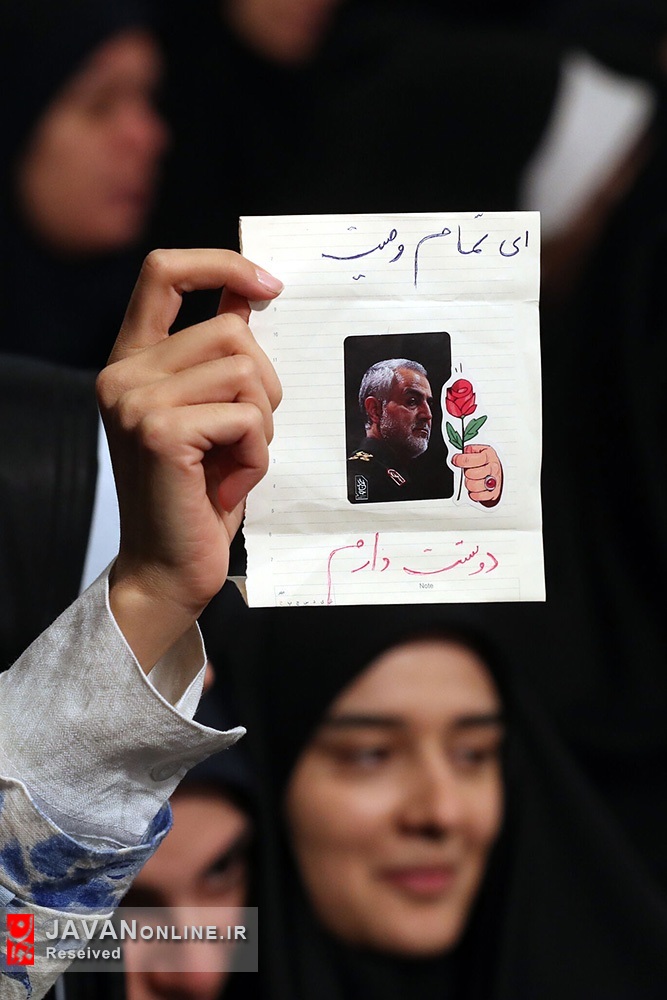 ای تمام وصیت
دوستت دارم
Note
JAVANONLINE.IR
Reseived